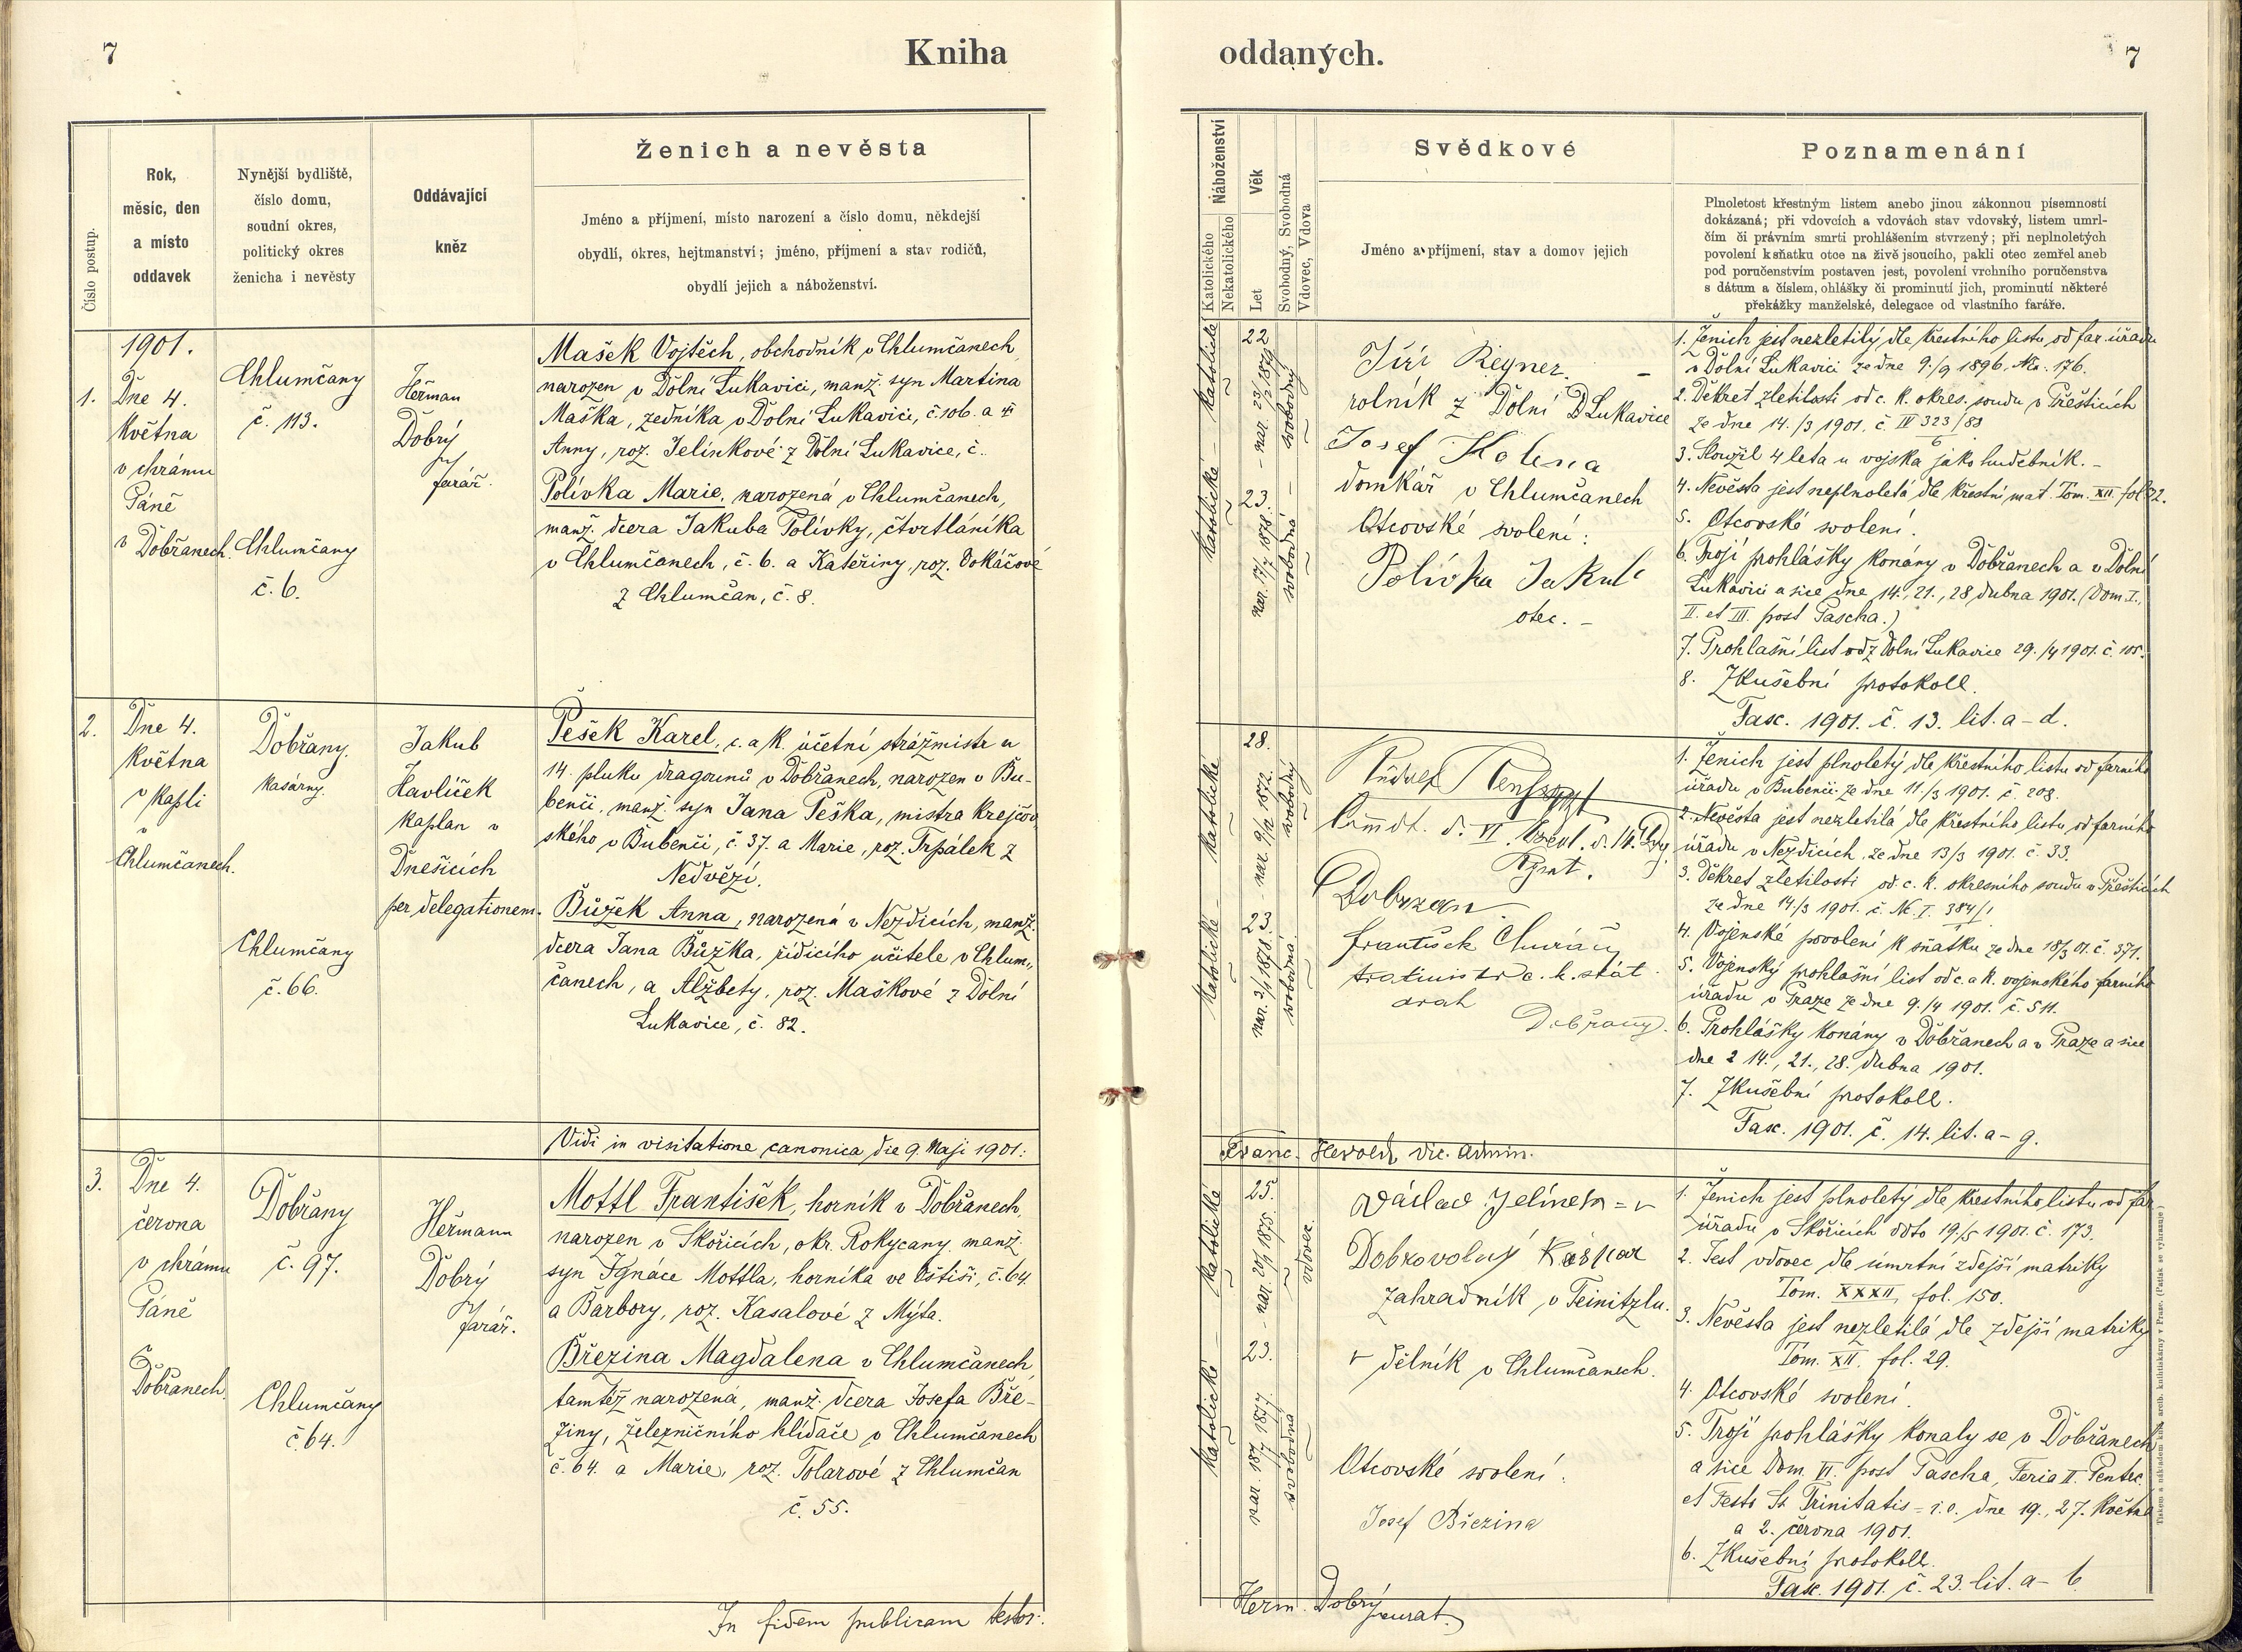 7
Kniha
Číslo postup.
Rok,
měsíc, den
a místo
oddavek
Nynější bydliště,
číslo domu,
soudní okres,
politický okres
ženicha i nevěsty
Oddávající
kněz
Ženich a nevěsta
Jméno a příjmení, místo narození a číslo domu, někdejší
obydlí, okres, hejtmanství; jméno, příjmení a stav rodičů,
obydlí jejich a náboženství.
1901.
1.
Dne 4.
května
v chrámu
Páně
v Dobřanech.
Chlumčany
č. 113.
Chlumčany
č. 6.
Heřman
Dobrý
farář.
Mašek Vojtěch, obchodník v Chlumčanech,
narozen v Dolní Lukavici, manž. syn Martina
Maška, zedníka v Dolní Lukavici, č. 106. a
Anny, roz. Jelínkové z Dolní Lukavice, č.
Polívka Marie, narozená v Chlumčanech,
manž. dcera Jakuba Polívky, čtvrtláníka
v Chlumčanech, č. 6. a Kateřiny, roz. Vokáčové
z Chlumčan, č. 8.
2.
Dne 4.
května
v kapli
v
Chlumčanech.
Dobřany.
kasárny.
Chlumčany
č. 66.
Jakub
Havlíček
kaplan v
Dnešicích
per delegationem.
Pešek Karel, c. a k. účetní strážmistr u
14. pluku dragounů v Dobřanech, narozen v Bu-
benči, manž. syn Jana Peška, mistra krejčov
ského v Bubenči, č. 37. a Marie, roz. Trpálek z
Nedvězí.
Bůžek Anna, narozená v Nezdicích, manž.
dcera Jana Bůžka, řídícího učitele v Chlum-
čanech, a Alžbety, roz. Maškové z Dolní
Lukavice, č. 82.
Vidi in visitatione canonica die 9. Maji 1901:
3.
Dne 4.
června
v chrámu
Páně
v
Dobřanech.
Dobřany
č. 97.
Chlumčany
č. 64.
Heřmann
Dobrý
farář.
Mottl František, horník v Dobřanech,
narozen v Skořicích, okr. Rokycany, manž.
syn Ignáce Mottla, horníka ve Vštiši, č. 64.
a Barbory, roz. Kasalové z Mýta.
Březina Magdalena v Chlumčanech,
tamtéž narozená, manž. dcera Josefa Bře-
ziny, železničního hlídače v Chlumčanech
č. 64. a Marie, roz. Tolarové z Chlumčan
č. 55.
In fidem publicam testor:
oddaných.
7
Náboženství
Katolického
Nekatolického
Věk
Let
Svobodný, Svobodná
Vdovec, Vdova
Svědkové
Jméno a příjmení, stav a domov jejich
Poznamenání
Plnoletost křestným listem anebo jinou zákonnou písemností
dokázaná; při vdovcích a vdovách stav vdovský, listem umrl-
čím či právním smrti prohlášením stvrzený; při neplnoletých
povolení k sňatku otce na živě jsoucího, pakli otec zemřel aneb
pod poručenstvím postaven jest, povolení vrchního poručenstva
s dátum a číslem, ohlášky či prominutí jich, prominutí některé
překážky manželské, delegace od vlastního faráře.
katolické - katolické
22
- nar. 23/2 1879
23.
nar. 17/7 1878.
svobodný
svobodná
Jiří Regner.
rolník z Dolní D Lukavice
Josef
domkář v Chlumčanech
Otcovské svolení:
Polívka Jakub
otec. -
1. Ženich jest nezletilý dle křestního listu od far. úřadu
v Dolní Lukavici ze dne 9./9 1896, No. 176.
2. Dekret zletilosti od c. k. okres. soudu v Přešticích
ze dne 14./3 1901. č. IV 323/88
6
3. Sloužil 4 léta u vojska jako hudebník. -
4. Nevěsta jest neplnoletá dle křestní mat. Tom. XII. fol 32.
5. Otcovské svolení.
6. Trojí prohlášky konány v Dobřanech a v Dolní
Lukavici a sice dne 14., 21., 28. dubna 1901. (Dom. I.,
II. et III. post Pascha.)
7. Prohlašní list od z Dolní Lukavice 29./4 1901. č. 105.
8. Zkušební protokoll.
Fasc. 1901. č. 13. lit. a - d.
katolické
katolické -
28.
- nar. 9/12 1872.
23.
nar. 3/1 1878.
svobodný
svobodná
Rudolf
Dobrzan
František
c. k. stát.
drah
Dobřany.
1. Ženich jest plnoletý dle křestního listu od farního
úřadu v Bubenči ze dne 11./3 1901. č. 208.
2. Nevěsta jest nezletilá dle křestního listu od farního
úřadu v Nezdicích, ze dne 13/3 1901. č. 33.
3. Dekret zletilosti od c. k. okresního soudu v Přešticích
ze dne 14./3 1901. č. Nc. I. 384/1
4. Vojenské povolení k sňatku ze dne 18/3 01. č. 371.
5. Vojenský prohlašní list od c. a k. vojenského farního
úřadu v Praze ze dne 9./4 1901. č. 511.
6. Prohlášky konány v Dobřanech a v Praze a sice
dne 14., 21., 28. dubna 1901.
7. Zkušební protokoll.
Fasc. 1901. č. 14. lit. a - g.
Franc. Herold, vic. Admin.
katolické -
katolické
25.
- nar. 20/9 1875.
23.
nar. 18/7 1877.
vdovec.
svobodná
Václav Jelínek = v
Dobrovolný Kašpar
zahradník v Teinitzlu.
v dělník v Chlumčanech.
Otcovské svolení:
Josef Březina
1. Ženich jest plnoletý dle křestního listu od far.
úřadu v Skořicích ddto 19./5 1901. č. 173.
2. Jest vdovec dle úmrtní zdejší matriky
Tom. XXXII, fol. 150.
3. Nevěsta jest nezletilá dle zdejší matriky
Tom. XII. fol. 29.
4. Otcovské svolení.
5. Trojí prohlášky konaly se v Dobřanech
a sice Dom. VI. post Pascha, Feria II. Pentec.
et Festo St. Trinitatis - i. e. dne 19., 27. května
a 2. června 1901.
6. Zkušební protokoll.
Fasc. 1901. č. 23. lit. a - b
Herm. Dobrý